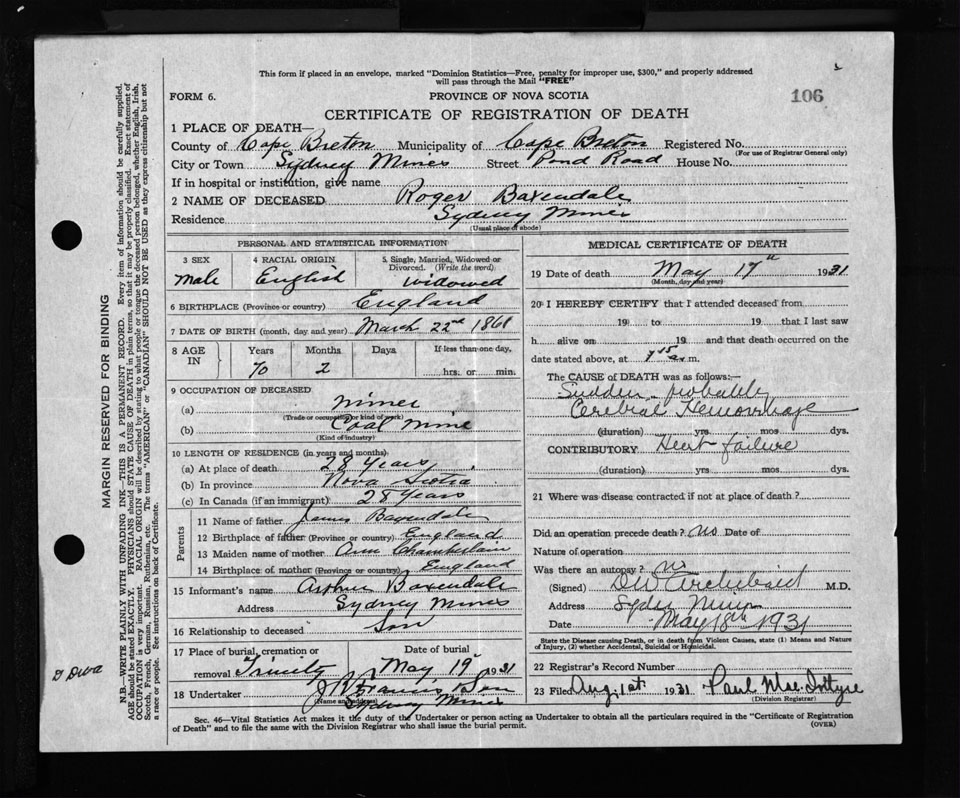 This form if placed in an envelope, marked "Dominion Statistics—Free, penalty for improper use, $300," and properly addressed
will pass through the Mail "FREE"
FORM 6. PROVINCE OF NOVA SCOTIA 106
CERTIFICATE OF REGISTRATION OF DEATH
1 PLACE OF DEATH—
County of Cape Breton Municipality of Cape Breton Registered No.
(For use of Registrar General only)
City or Town Sydney Mines Street Pond Road House No.
If in hospital or institution, give name
2 NAME OF DECEASED Roger Baxendale
Residence Sydney Mines
(Usual place of abode)
PERSONAL AND STATISTICAL INFORMATION
3 SEX 4 RACIAL ORIGIN 5 Single, Married, Widowed or
Divorced. (Write the word)
male English widowed
6 BIRTHPLACE (Province or country) England
7 DATE OF BIRTH (month, day and year) March 22nd 1861
8 AGE IN Years Months Days If less than one day,
70 2 hrs. or min.
9 OCCUPATION OF DECEASED
(a) miner
(Trade or occupation or kind of work)
(b) Coal mine
(Kind of industry)
10 LENGTH OF RESIDENCE (in years and months)
(a) At place of death 28 years
(b) In province Nova Scotia
(c) In Canada (if an immigrant) 28 years
Parents
11 Name of father James Baxendale
12 Birthplace of father (Province or country) England
13 Maiden name of mother Ann Chamberlain
14 Birthplace of mother (Province or country) England
15 Informant's name Arthur Baxendale
Address Sydney Mines
16 Relationship to deceased Son
17 Place of burial, cremation or Date of burial
removal Trinity May 19 1931
18 Undertaker Francis & Son
(Name and address) Sydney Mines
MEDICAL CERTIFICATE OF DEATH
19 Date of death May 17th 1931
(Month, day and year)
20 I HEREBY CERTIFY that I attended deceased from
19 to 19 that I last saw
h alive on 19 and that death occurred on the
date stated above, at m.
The CAUSE of DEATH was as follows:—
Sudden - probably
Cerebral Hemorrhage
(duration) yrs. mos. dys.
CONTRIBUTORY Heart failure
(duration) yrs. mos. dys.
21 Where was disease contracted if not at place of death?
Did an operation precede death? no Date of
Nature of operation
Was there an autopsy? no
(Signed) D W Archibald M.D.
Address Sydney Mines
Date May 18th 1931
State the Disease causing Death, or in death from Violent Causes, state (1) Means and Nature
of Injury, (2) whether Accidental, Suicidal or Homicidal.
22 Registrar's Record Number
23 Filed Aug. 1st 1931 Paul MacIntyre
(Division Registrar)
Sec. 46—Vital Statistics Act makes it the duty of the Undertaker or person acting as Undertaker to obtain all the particulars required in the "Certificate of Registration
of Death" and to file the same with the Division Registrar who shall issue the burial permit. (OVER)
MARGIN RESERVED FOR BINDING
N.B.—WRITE PLAINLY WITH UNFADING INK—THIS IS A PERMANENT RECORD. Every item of information should be carefully supplied.
AGE should be stated EXACTLY. PHYSICIANS should STATE CAUSE OF DEATH in plain terms, so that it may be properly classified. Exact statement of
OCCUPATION is very important. RACIAL ORIGIN will be described by stating to what people or tongue the deceased person belonged, whether English, Irish,
Scotch, French, German, Russian, Ruthenian, etc. The terms "AMERICAN" or "CANADIAN" SHOULD NOT BE USED as they express citizenship but not
a race or people. See instructions on back of Certificate.